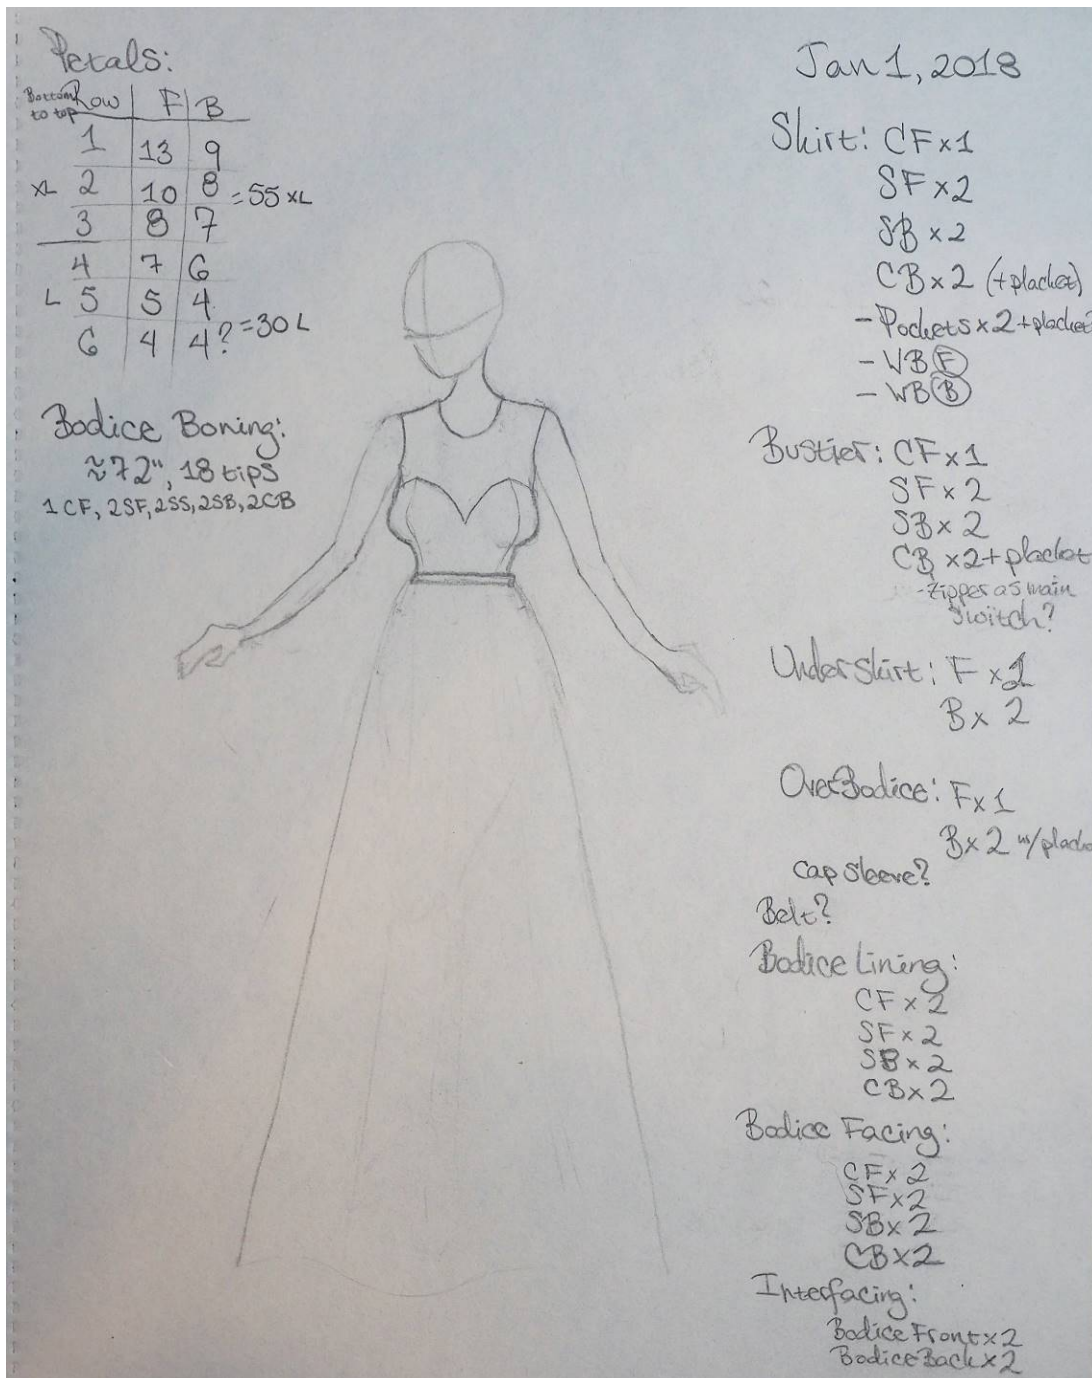 Petals:
Bottom to top Row F B
1 13 9
XL 2 10 8 = 55 XL
3 8 7
4 7 6
L 5 5 4
6 4 4? = 30 L
Bodice Boning:
≈72", 18 tips
1 CF, 2SF, 2SS, 2SB, 2CB
Jan 1, 2018
Skirt: CF x1
SF x 2
SB x 2
CB x 2 (+placket)
- Pockets x 2 + placket?
- WB F
- WB B
Bustier: CF x 1
SF x 2
SB x 2
CB x2 + placket
- Zipper as main
switch?
Underskirt: F x
B x 2
OverBodice: F x 1
B x 2 w/placke
Cap Sleeve?
Belt?
Bodice Lining:
CF x 2
SF x 2
SB x 2
CB x 2
Bodice Facing:
CF x 2
SF x 2
SB x 2
CB x 2
Interfacing:
Bodice Front x 2
Bodice Back x 2